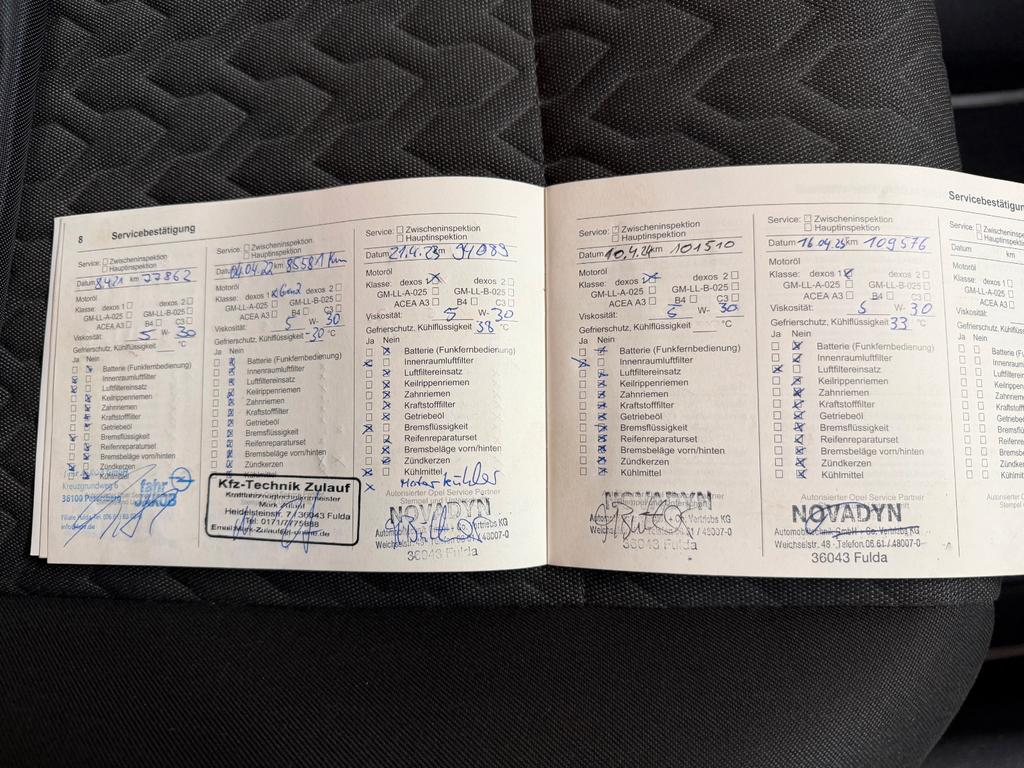 8 Servicebestätigung
Service: Zwischeninspektion
Hauptinspektion
Datum 8421 km 77862
Motoröl
Klasse: dexos 1 dexos 2
GM-LL-A-025 GM-LL-B-025
ACEA A3 B4 C3
Viskosität: 5 W- 30
Gefrierschutz, Kühlflüssigkeit °C
Ja Nein
Batterie (Funkfernbedienung)
Innenraumluftfilter
Luftfiltereinsatz
Keilrippenriemen
Zahnriemen
Kraftstofffilter
Getriebeöl
Bremsflüssigkeit
Reifenreparaturset
Bremsbeläge vorn/hinten
Zündkerzen
Kühlmittel
Kreuzgrundweg 6
36100 Petersberg
fahr
JAKOB
Service: Zwischeninspektion
Hauptinspektion
Datum 04.04.22 km 85581 km
Motoröl
Klasse: dexos 1 Gen2 dexos 2
GM-LL-A-025 GM-LL-B-025
ACEA A3 B4 C3
Viskosität: 5 W- 30
Gefrierschutz, Kühlflüssigkeit -30 °C
Ja Nein
Batterie (Funkfernbedienung)
Innenraumluftfilter
Luftfiltereinsatz
Keilrippenriemen
Zahnriemen
Kraftstofffilter
Getriebeöl
Bremsflüssigkeit
Reifenreparaturset
Bremsbeläge vorn/hinten
Zündkerzen
Kfz-Technik Zulauf
Kraftfahrzeugtechnikermeister
Mark Zulauf
Heidelsteinstr. 7 / 36043 Fulda
Tel: 0171/7775888
Service: Zwischeninspektion
Hauptinspektion
Datum 21.4.23 km 94089
Motoröl
Klasse: dexos dexos 2
GM-LL-A-025 GM-LL-B-025
ACEA A3 B4 C3
Viskosität: 5 W- 30
Gefrierschutz, Kühlflüssigkeit 38 °C
Ja Nein
Batterie (Funkfernbedienung)
Innenraumluftfilter
Luftfiltereinsatz
Keilrippenriemen
Zahnriemen
Kraftstofffilter
Getriebeöl
Bremsflüssigkeit
Reifenreparaturset
Bremsbeläge vorn/hinten
Zündkerzen
Kühlmittel
Motorkühler
Autorisierter Opel Service Partner
NOVADYN
Vertriebs KG
Weichselstr. 48 - Telefon 06 61 / 48007-0
36043 Fulda
Servicebestätigung
Service: Zwischeninspektion
Hauptinspektion
Datum 10.4.24 km 101510
Motoröl
Klasse: dexos dexos 2
GM-LL-A-025 GM-LL-B-025
ACEA A3 B4 C3
Viskosität: 5 W- 30
Gefrierschutz, Kühlflüssigkeit °C
Ja Nein
Batterie (Funkfernbedienung)
Innenraumluftfilter
Luftfiltereinsatz
Keilrippenriemen
Zahnriemen
Kraftstofffilter
Getriebeöl
Bremsflüssigkeit
Reifenreparaturset
Bremsbeläge vorn/hinten
Zündkerzen
Kühlmittel
Autorisierter Opel Service Partner
NOVADYN
Vertriebs KG
Weichselstr. 48 - Telefon 06 61 / 48007-0
36043 Fulda
Service: Zwischeninspektion
Hauptinspektion
Datum 16.04.25 km 109576
Motoröl
Klasse: dexos 1 dexos 2
GM-LL-A-025 GM-LL-B-025
ACEA A3 B4 C3
Viskosität: 5 W- 30
Gefrierschutz, Kühlflüssigkeit 33 °C
Ja Nein
Batterie (Funkfernbedienung)
Innenraumluftfilter
Luftfiltereinsatz
Keilrippenriemen
Zahnriemen
Kraftstofffilter
Getriebeöl
Bremsflüssigkeit
Reifenreparaturset
Bremsbeläge vorn/hinten
Zündkerzen
Kühlmittel
Autorisierter Opel Service Partner
NOVADYN
Automobiltechnik GmbH + Co. Vertriebs KG
Weichselstr. 48 - Telefon 06 61 / 48007-0
36043 Fulda
Service:
Datum
km
Motoröl
Klasse:
Viskosität:
Ja Nein